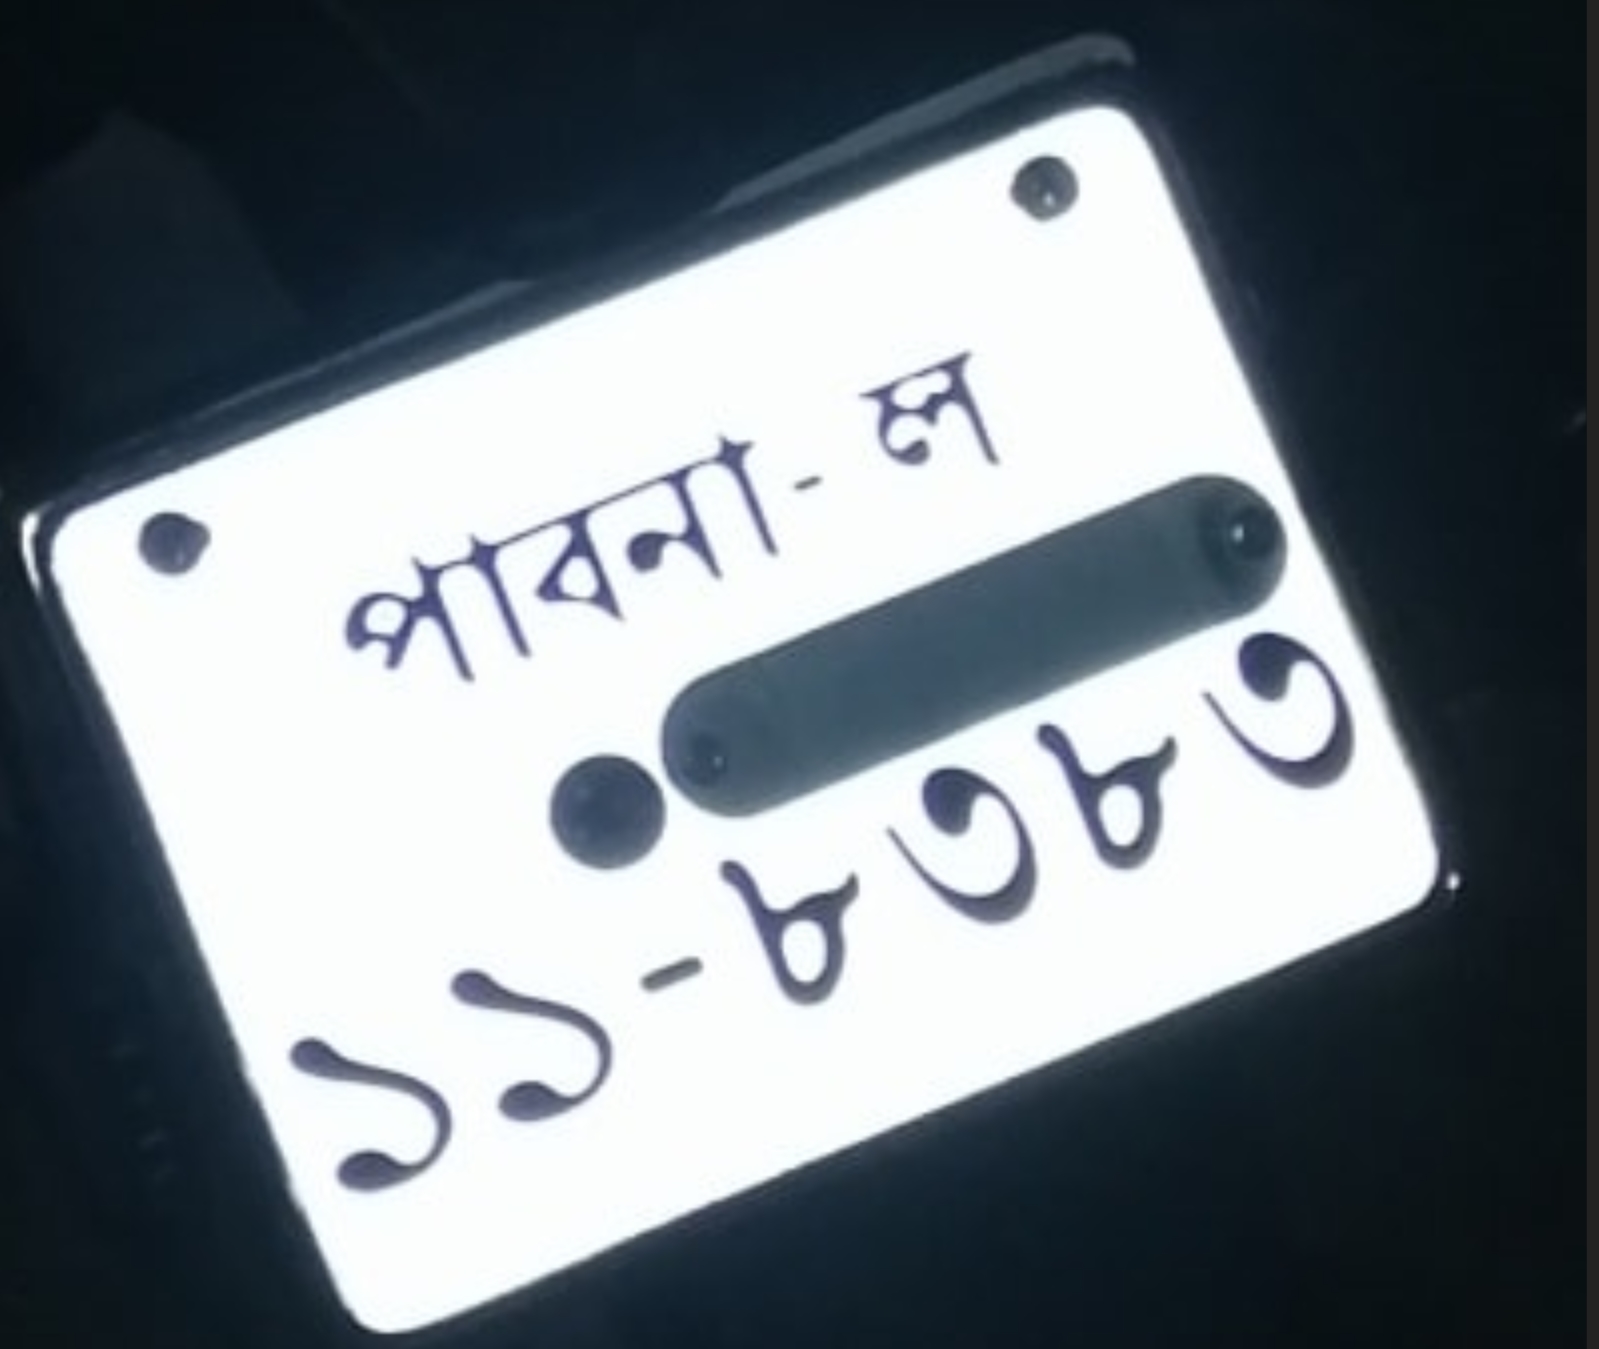 পাবনা - ল
১১-৮৩৮৩